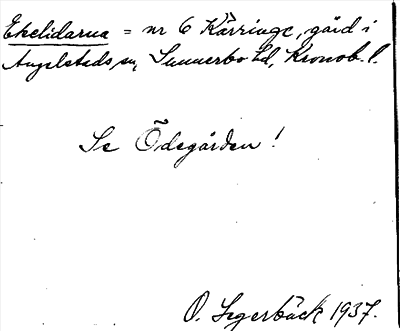 Ekelidarna = nr 6 Kärringe, gård i
Angelstads sn, Sunnerbo hd, Kronob. l.
Se Ödegården!
O. Segerbäck 1937.